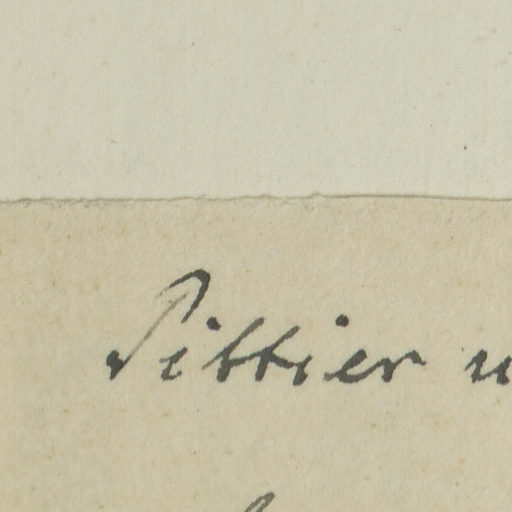 Pittier u